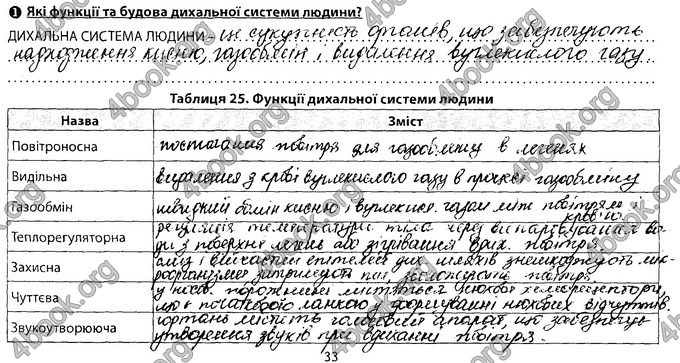 ❶ Які функції та будова дихальної системи людини?
ДИХАЛЬНА СИСТЕМА ЛЮДИНИ – це сукупність органів, що забезпечують
надходження кисню, газообмін і видалення вуглекислого газу
Таблиця 25. Функції дихальної системи людини
Назва Зміст
Повітроносна постачання повітря для газообміну в легенях
Видільна видалення з крові вуглекислого газу в процесі газообміну
Газообмін швидкий обмін киснем і вуглекисл. газом між повітрям і
кров'ю
Теплорегуляторна регуляція температури тіла через випаровування во-
ди з поверхні легень або зігрівання вдих. повітря
Захисна слиз і війчастий епітелій дих. шляхів знешкоджують мік-
роорганізми, затримують пил, повітря
Чуттєва у носов. порожнині містяться нюхові хеморецептори,
що є початковою ланкою у формуванні нюхових відчуттів
Звукоутворююча гортань містить голосовий апарат, що забезпечує
утворення звуків при повітря
33
4book.org
4book.org
4book.org
4book.org
4book.org
4book.org